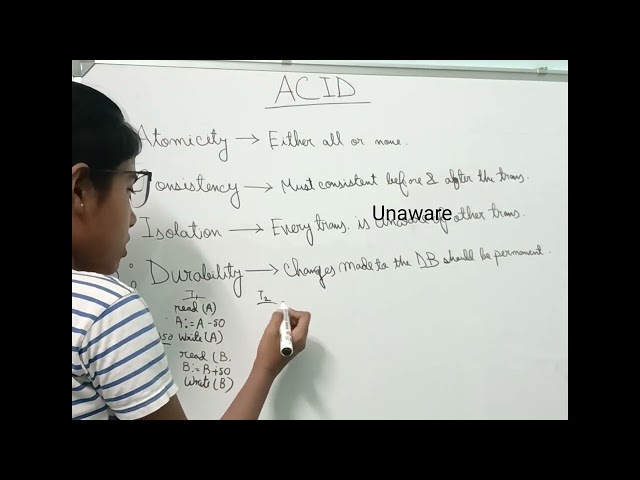 ACID
Atomicity → Either all or none.
Consistency → Must consistent before & after the trans.
Unaware
Isolation → Every trans. is unaware of other trans.
Durability → Changes made to the DB should be permanent.
T1 T2
read (A)
A:= A-50
50 write (A)
read (B.
B:= B+50
write (B)